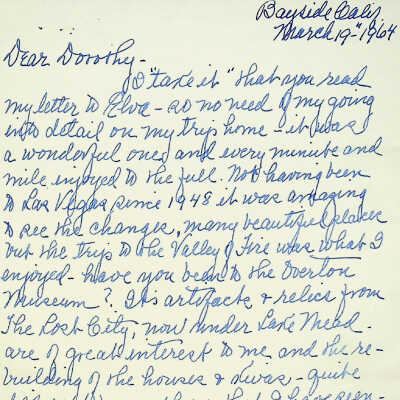 Bayside Calif
March 19" 1964
Dear Dorothy-
I "take it" that you read
my letter to Elva - so no need of my going
into detail on my trip home - it was
a wonderful one, and every minute and
mile enjoyed to the full. Not having been
to Las Vegas since 1948 it was amazing
to see the changes, many beautiful places
but the trip to the Valley of Fire was what I
enjoyed - have you been to the Overton
Museum? Its artifacts & relics from
The Lost City, now under Lake Mead -
are of great interest to me and the re-
building of the houses & was - quite